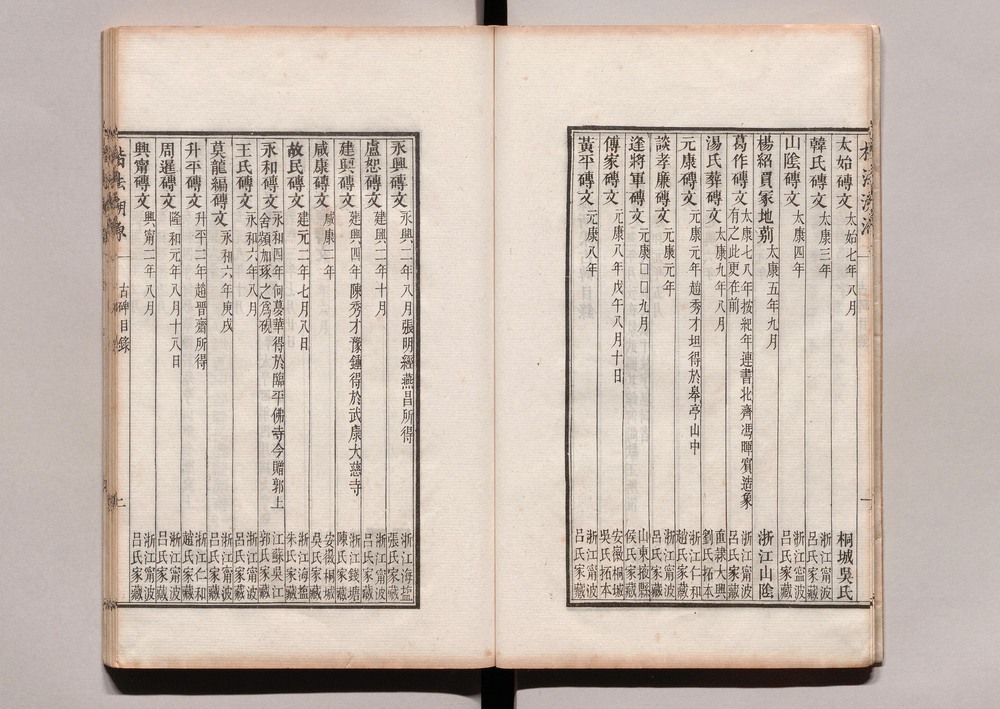 太始磚文 太始七年八月 桐城吳氏
韓氏磚文 太康三年 浙江甯波呂氏家藏
山陰磚文 太康四年 浙江甯波呂氏家藏
楊紹買冢地莂 太康五年九月 浙江山陰
葛作磚文 太康七八年按紀年連書北齊馮暉賓造象有之此更在前 浙江甯波呂氏家藏
湯氏葬磚文 太康九年八月 直隸大興劉氏拓本
元康磚文 元康元年趙秀才坦得於皋亭山中 浙江仁和趙氏家藏
談孝廉磚文 元康元年 浙江甯波呂氏家藏
逢將軍磚文 元康囗囗九月 山東掖縣侯氏家藏
傅家磚文 元康八年戊午八月十日 安徽桐城吳氏拓本
黃平磚文 元康八年 浙江甯波呂氏家藏
永興磚文 永興二年八月張明經燕昌所得 浙江海鹽張氏家藏
盧恕磚文 建興二年十月 浙江甯波呂氏家藏
建興磚文 建興四年陳秀才豫鍾得於武康大慈寺 浙江錢塘陳氏家藏
咸康磚文 咸康二年 安徽桐城吳氏家藏
故民磚文 建元二年七月八日 浙江海鹽朱氏家藏
永和磚文 永和四年何夢華得於臨平佛寺今贈郭上舍頻加琢之爲硯 江蘇吳江郭氏家藏
王氏磚文 永和六年八月 浙江甯波呂氏家藏
莫龍編磚文 永和六年庚戌 浙江甯波呂氏家藏
升平磚文 升平二年趙晉齋所得 浙江仁和趙氏家藏
周暹磚文 隆和元年八月十八日 浙江甯波呂氏家藏
興甯磚文 興甯二年八月 浙江甯波呂氏家藏
古碑目錄 二